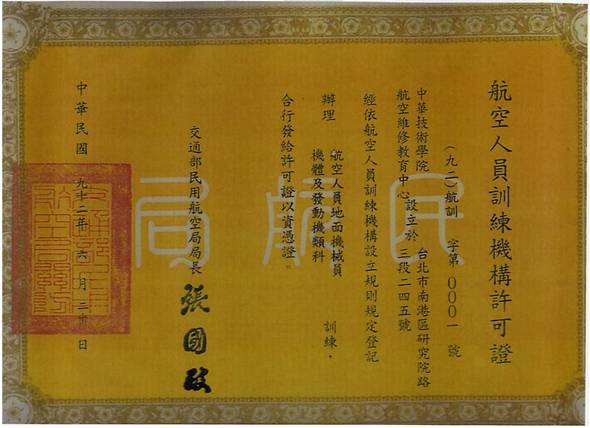 航空人員訓練機構許可證
(九二)航訓 字第 〇〇〇一 號
中華技術學院
航空維修教育中心設立於
台北市南港區研究院路
三段二四五號
經依航空人員訓練機構設立規則規定登記
辦理
航空人員地面機械員
機體及發動機類科
訓練,
合行發給許可證以資憑證
交通部民用航空局局長
張國政
中華民國 九十二年 六月 二十 日
民航局